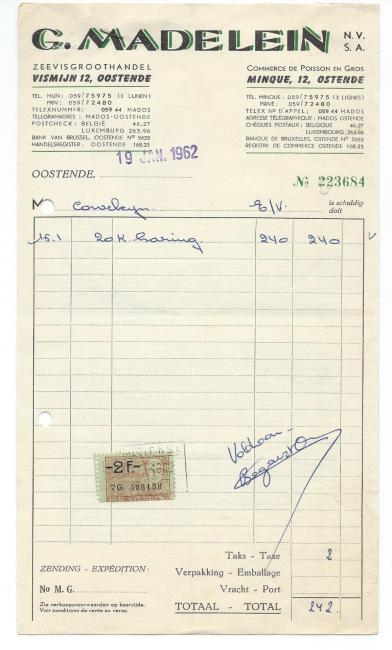 G. MADELEIN N.V. S.A.
ZEEVISGROOTHANDEL
VISMIJN 12, OOSTENDE
TEL. MIJN: 059/75975 (3 LIJNEN)
PRIV.: 059/72480
TELEXNUMMER: 059 44 MADOS
TELEGRAMADRES: MADOS-OOSTENDE
POSTCHECK: BELGIË 46.27
LUXEMBURG 263.96
BANK VAN BRUSSEL, OOSTENDE Nº 5633
HANDELSREGISTER: OOSTENDE 168.23
COMMERCE DE POISSON EN GROS
MINQUE, 12, OSTENDE
TEL. MINQUE: 059/75975 (3 LIGNES)
PRIVÉ: 059/72480
TELEX Nº D'APPEL: 059 44 MADOS
ADRESSE TÉLÉGRAPHIQUE: MADOS OSTENDE
CHÈQUES POSTAUX: BELGIQUE 46.27
LUXEMBOURG. 263.96
BANQUE DE BRUXELLES, OSTENDE Nº 5633
REGISTRE DE COMMERCE OSTENDE 168.23
19 JAN. 1962
OOSTENDE,
Nº 223684
M E/V. is schuldig doit
15.1 20 K haring. 240 240 V
Voldaan
-2F-
7G
Taks - Taxe 2
ZENDING - EXPÉDITION:
Verpakking - Emballage
No M. G.
Vracht - Port
Zie verkoopsvoorwaarden op keerzijde.
Voir conditions de vente au verso.
TOTAAL - TOTAL 242.